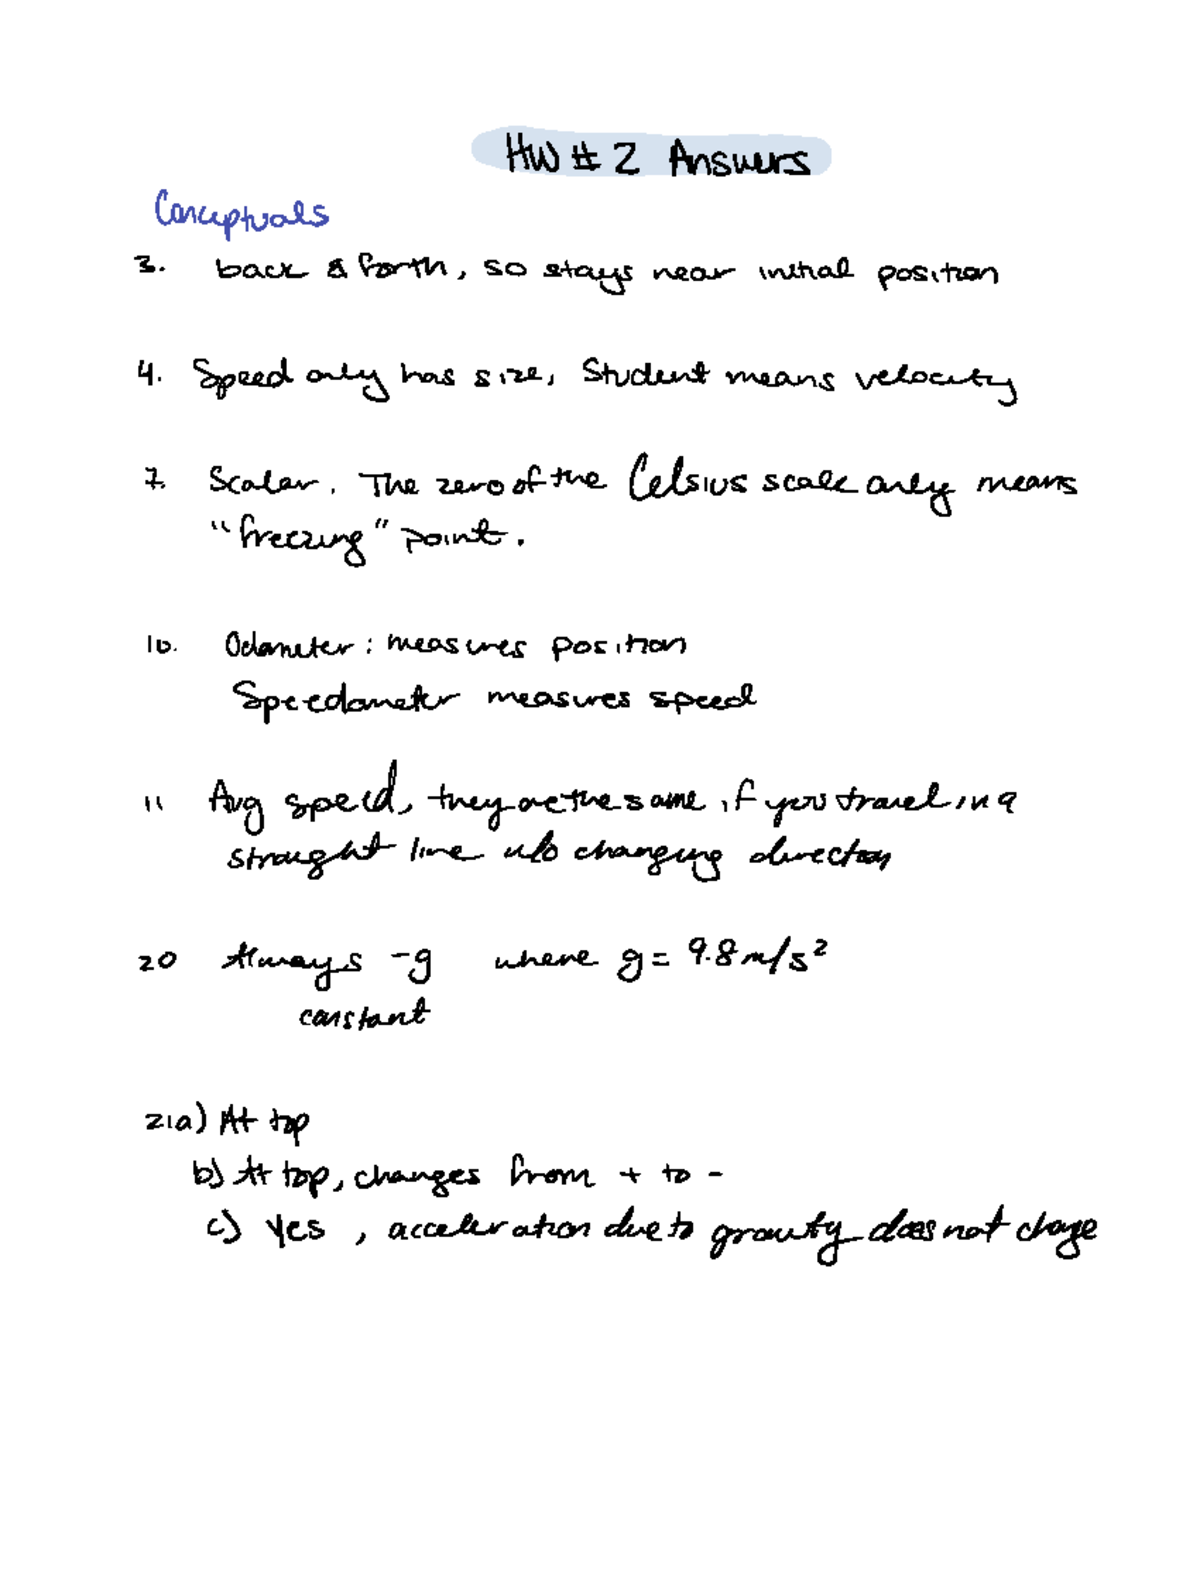 HW # 2 Answers
Conceptuals
3. back & forth, so stays near initial position
4. Speed only has size, Student means velocity
7. Scalar. The zero of the Celsius scale only means
"freezing" point.
10. Odometer: measures position
Speedometer measures speed
11 Avg speed, they are the same if you travel in a
straight line w/o changing direction
20 Always -g where g = 9.8 m/s²
constant
21a) At top
b) At top, changes from + to -
c) Yes, acceleration due to gravity does not change